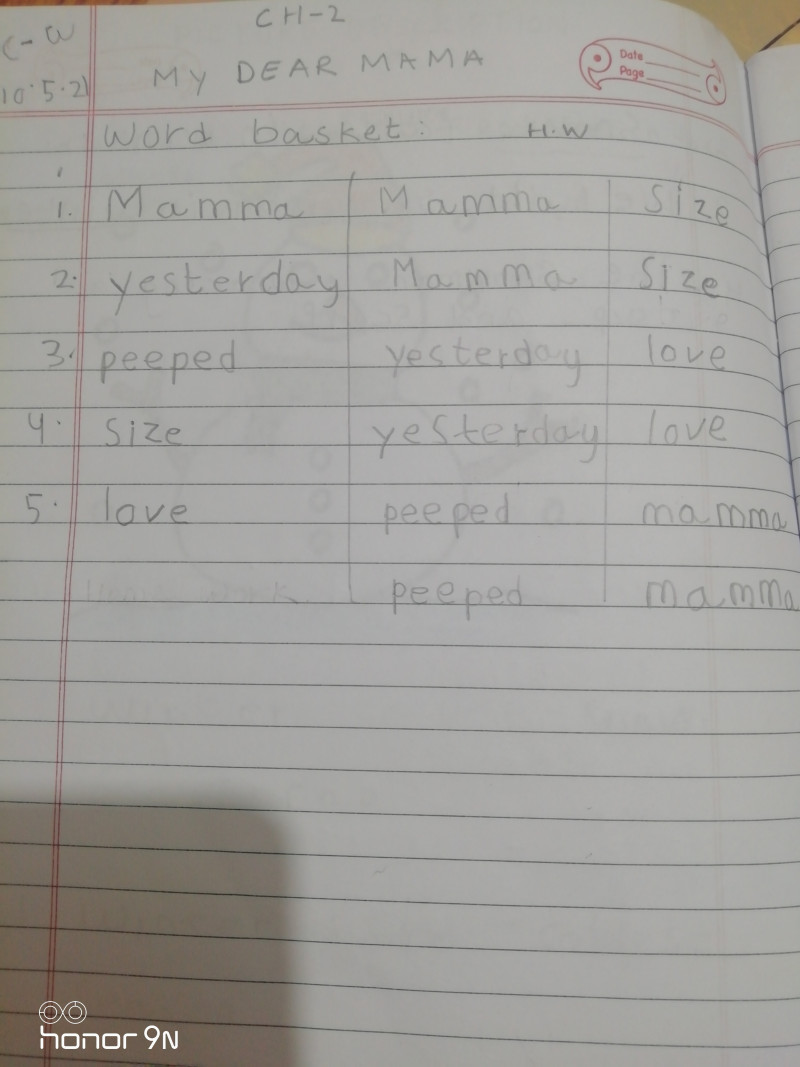 CH-2
C-W
MY DEAR MAMA
Date
Page
10.5.21
Word basket: H.W
1. Mamma Mamma Size
2. yesterday Mamma Size
3. peeped yesterday love
4. Size yesterday love
5. love peeped mamma
peeped mamma
honor 9N